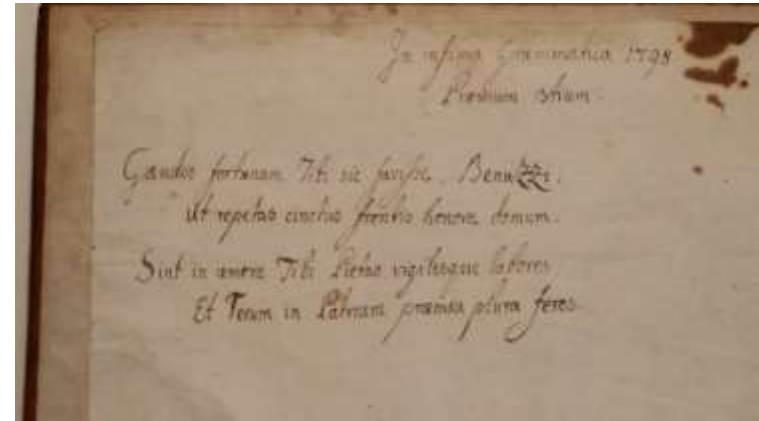 In infima Grammatica 1798
Præmium 8ium.
Gaudeo fortunam Tibi sic favisse, Benuzzi,
Ut repetas cinctus frontis honore domum.
Sint in amore Tibi Pietas vigilesque labores,
Et Tecum in Patriam præmia plura feres.